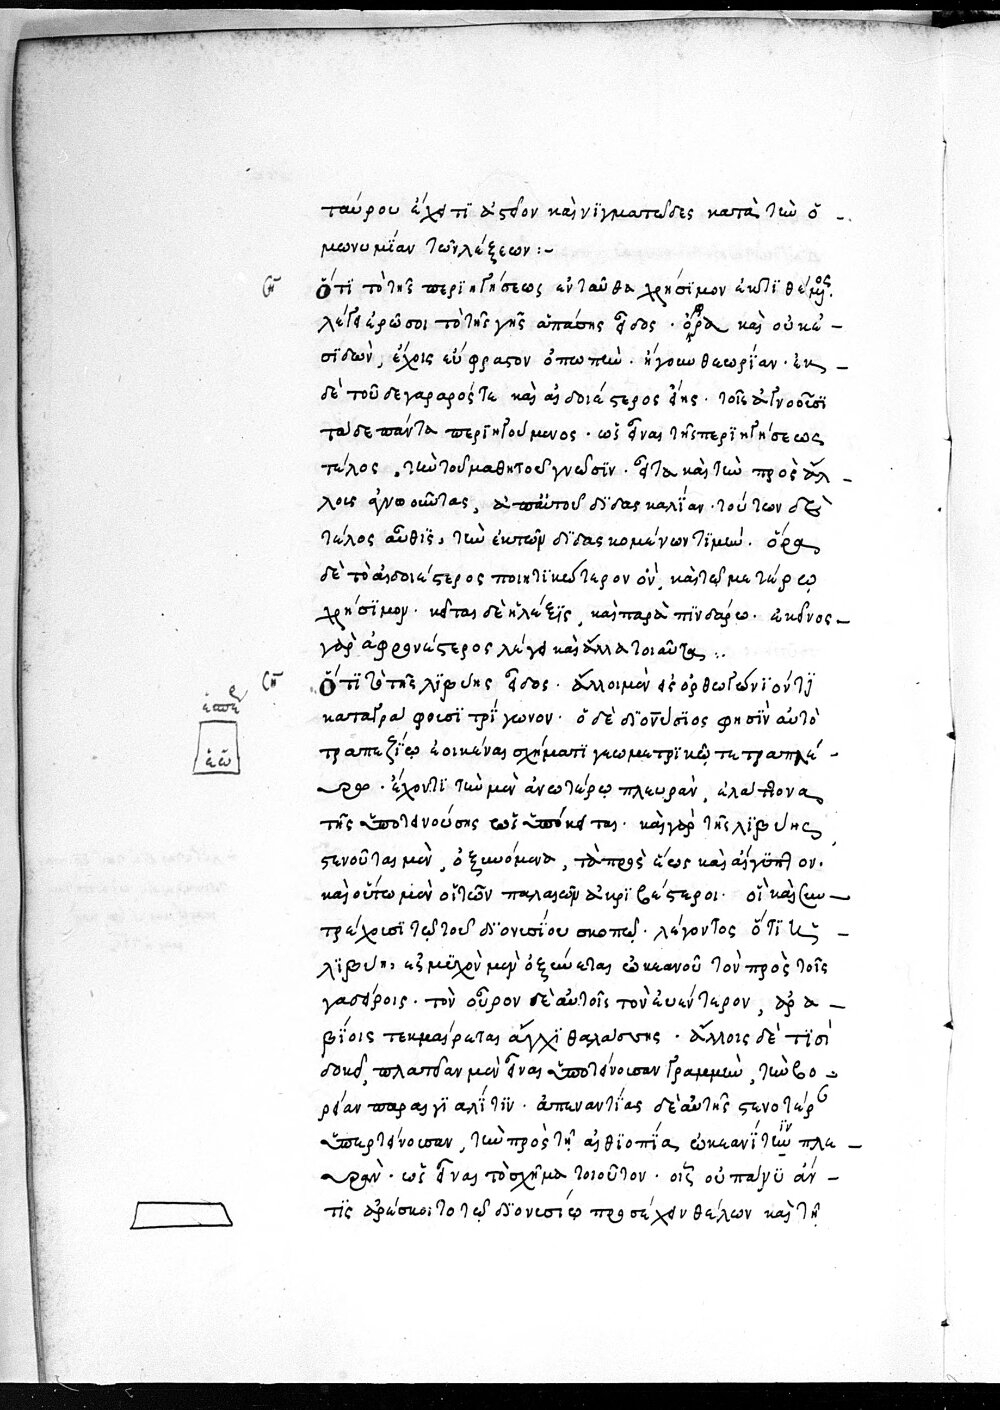 ταύρου ἔχει τι ἀστεῖον καὶ νιγματῶδες κατὰ τὴν ὁ-
μωνυμίαν τῶν λέξεων:-
Ὅτι τὸ τῆς περιηγήσεως ἐνταῦθα χρήσιμον ἐκτιθέμενος
λέγει ἐρῶ σοι τὸ τῆς γῆς ἁπάσης εἶδος· ὄφρα καὶ οὐκ ἐ-
σιδὼν, ἔχοις εὔφραστον ὀπωπὴν· ἤγουν θεωρίαν· ἐκ
δὲ τοῦδε γαραρός τε καὶ αἰδοιέστερος εἴης· τοῖς ἀγνοοῦσι
τάδε πάντα περιηγούμενος· ὡς εἶναι τῆς περιηγήσεως
τέλος, τὴν τοῦ μαθητοῦ γνῶσιν· εἶτα καὶ τὴν πρὸς ἄλ-
λους ἀγνοοῦντας, ἀπ' αὐτοῦ διδασκαλίαν· τούτων δὲ
τέλος αὖθις, τὴν ἐκ τῶν διδασκομένων τιμὴν. ὅρα
δὲ τὸ αἰδοιέστερος ποιητικώτερον ὂν, καὶ τῷ μέτρῳ
χρήσιμον· κεῖται δὲ ἡ λέξις, καὶ παρὰ πινδάρῳ· ἐκεῖνος
γὰρ ἀφθονέστερος λέγει καὶ ἄλλα τοιαῦτα:.
Ὅτι τὸ τῆς λιβύης εἶδος· ἄλλοι μὲν εἰς ὀρθογώνιον τι
καταγράφουσι τρίγωνον· ὁ δὲ διονύσιος φησὶν αὐτὸ
τραπεζίῳ ἐοικέναι σχήματι γεωμετρικῷ τετραπλε-
ύρῳ· ἔχοντι τὴν μὲν ἀνωτέρω πλευρὰν, ἐλάττονα
τῆς ὑποτεινούσης ὡς ὑπόκειται· καὶ γὰρ τῆς λιβύης
στενοῦται μὲν, ὀξυνόμενα, τὰ πρὸς ἕως καὶ αἴγυπτον·
καὶ οὕτω μὲν οἱ τῶν παλαιῶν ἀκριβέστεροι· οἳ καὶ συν-
τρέχουσι τῷ τοῦ διονυσίου σκοπῷ· λέγοντος ὅτι ἡ
λιβύη, εἰς μυχὸν μὲν ὀξύνεται ὠκεανοῦ τὸν πρὸς τοῖς
γαδείροις· τὸν οὖρον δὲ αὐτοῖς τὸν εὐρύτερον, ἀρα-
βίοις τεκμαίρεται ἄγχι θαλάσσης· ἄλλοις δὲ τισὶ
δοκεῖ, πλατεῖαν μὲν εἶναι ὑποτείνουσαν γραμμὴν, τὴν βο-
ρείαν παραιγιαλίτιν· ἀπεναντίας δὲ αὐτῆς στενοτέρ
ὑπερτείνουσαν, τὴν πρὸς τῇ αἰθιοπίᾳ ὠκεανίτιν πλε-
υρὰν· ὡς εἶναι τὸ σχῆμα τοιοῦτον· οἷς οὐ πάνυ ἄν
τις ἀρέσκοιτο τῷ διονυσίῳ προσέχειν θέλων καὶ τῇ